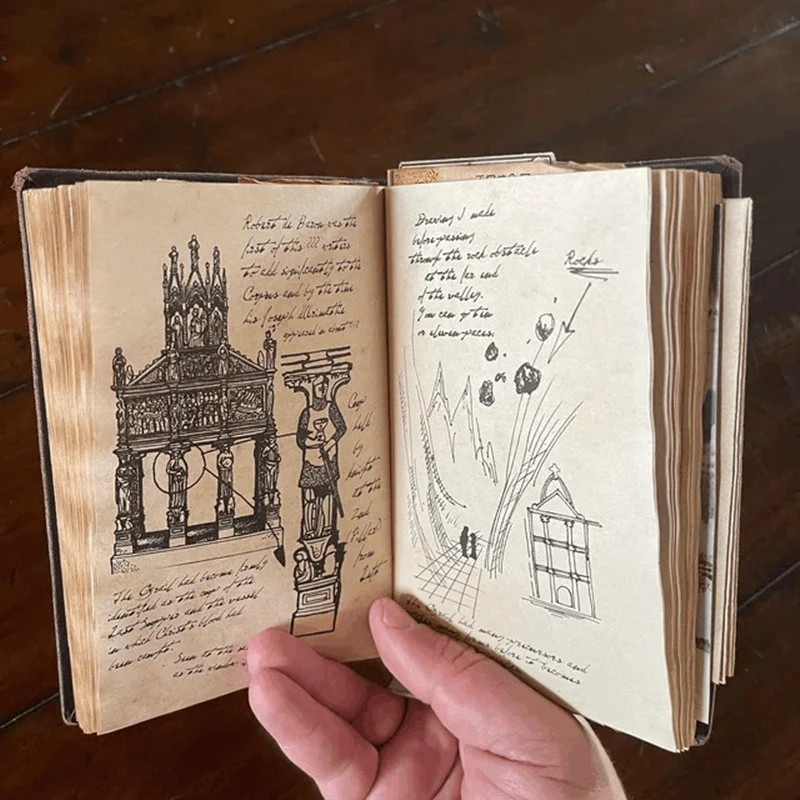 Robert de Boron was the
first of this ??? writers
to add significantly to the
Corpus and by the time
his Joseph
appeared in about
Cup
held
by
knight
at the
2nd
(Pillar)
from
Left
The Grail had become firmly
identified as the cup of the
Last Supper and the vessel
in which Christ's blood had
been caught.
Seen to the
as the
Drawing I made
before passing
through the rock obstacle
at the far end
of the valley.
You can go ten
or eleven paces.
Rocks
or
The Grail had many precursors and
before it becomes